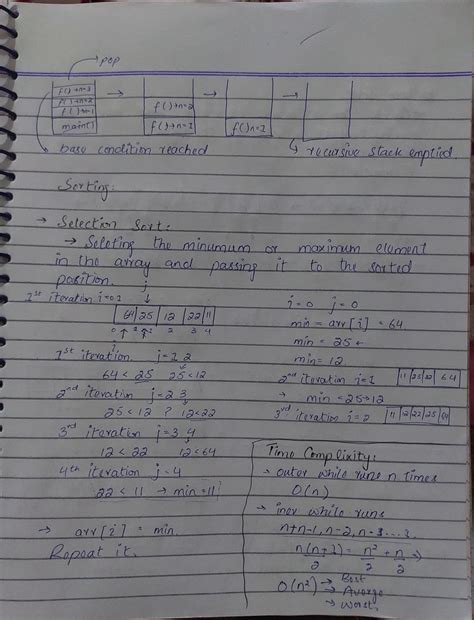 pop
f()→n=3
f()→n=2
f()→n=1
main()
f()→n=2
f()→n=1
f()→n=1
base condition reached
recursive stack emptied
Sorting:
→ Selection Sort:
→ Seleting the minumum or maximum element
in the array and passing it to the sorted
position.
1st iteration i=0,1
j
64 25 12 22 11
0 1 2 3 4
i=0 j=0
min = arr[i] = 64
min = 25 ←
min = 12
1st iteration j=1 2
64 < 25 25<12
2nd iteration i=1
11 25 12 22 64
→ min = 25→12
2nd iteration j=2 3
25 < 12 ? 12<22
3rd iteration i=2
11 12 22 25 64
3rd iteration j=3, 4
12 < 22 12<64
4th iteration j=4
22 < 11 → min=11
→ arr[i] = min.
Repeat it.
Time Complixity:
→ outer while runs n times
O(n)
→ iner while runs
n+n-1, n-2, n-3 ...
n(n+1) = n² + n ⇒
2 2 2
O(n²) → Best
→ Averge
→ Worst.